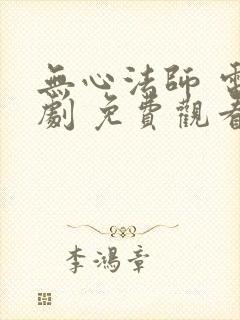 無心法師
劇 免費觀
李鴻章